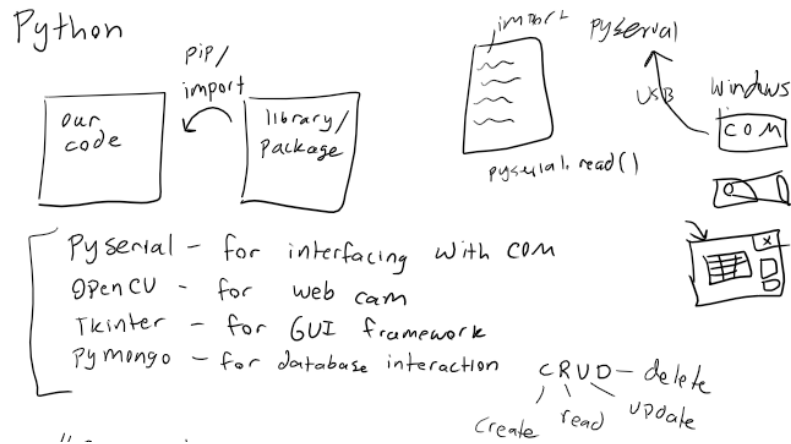 Python
pip/
import
our
code
library/
package
import
pyserial
USB
Windows
COM
pyserial.read()
x
Pyserial - for interfacing with COM
OpenCV - for web cam
Tkinter - for GUI framework
Pymongo - for database interaction
CRUD - delete
create read update